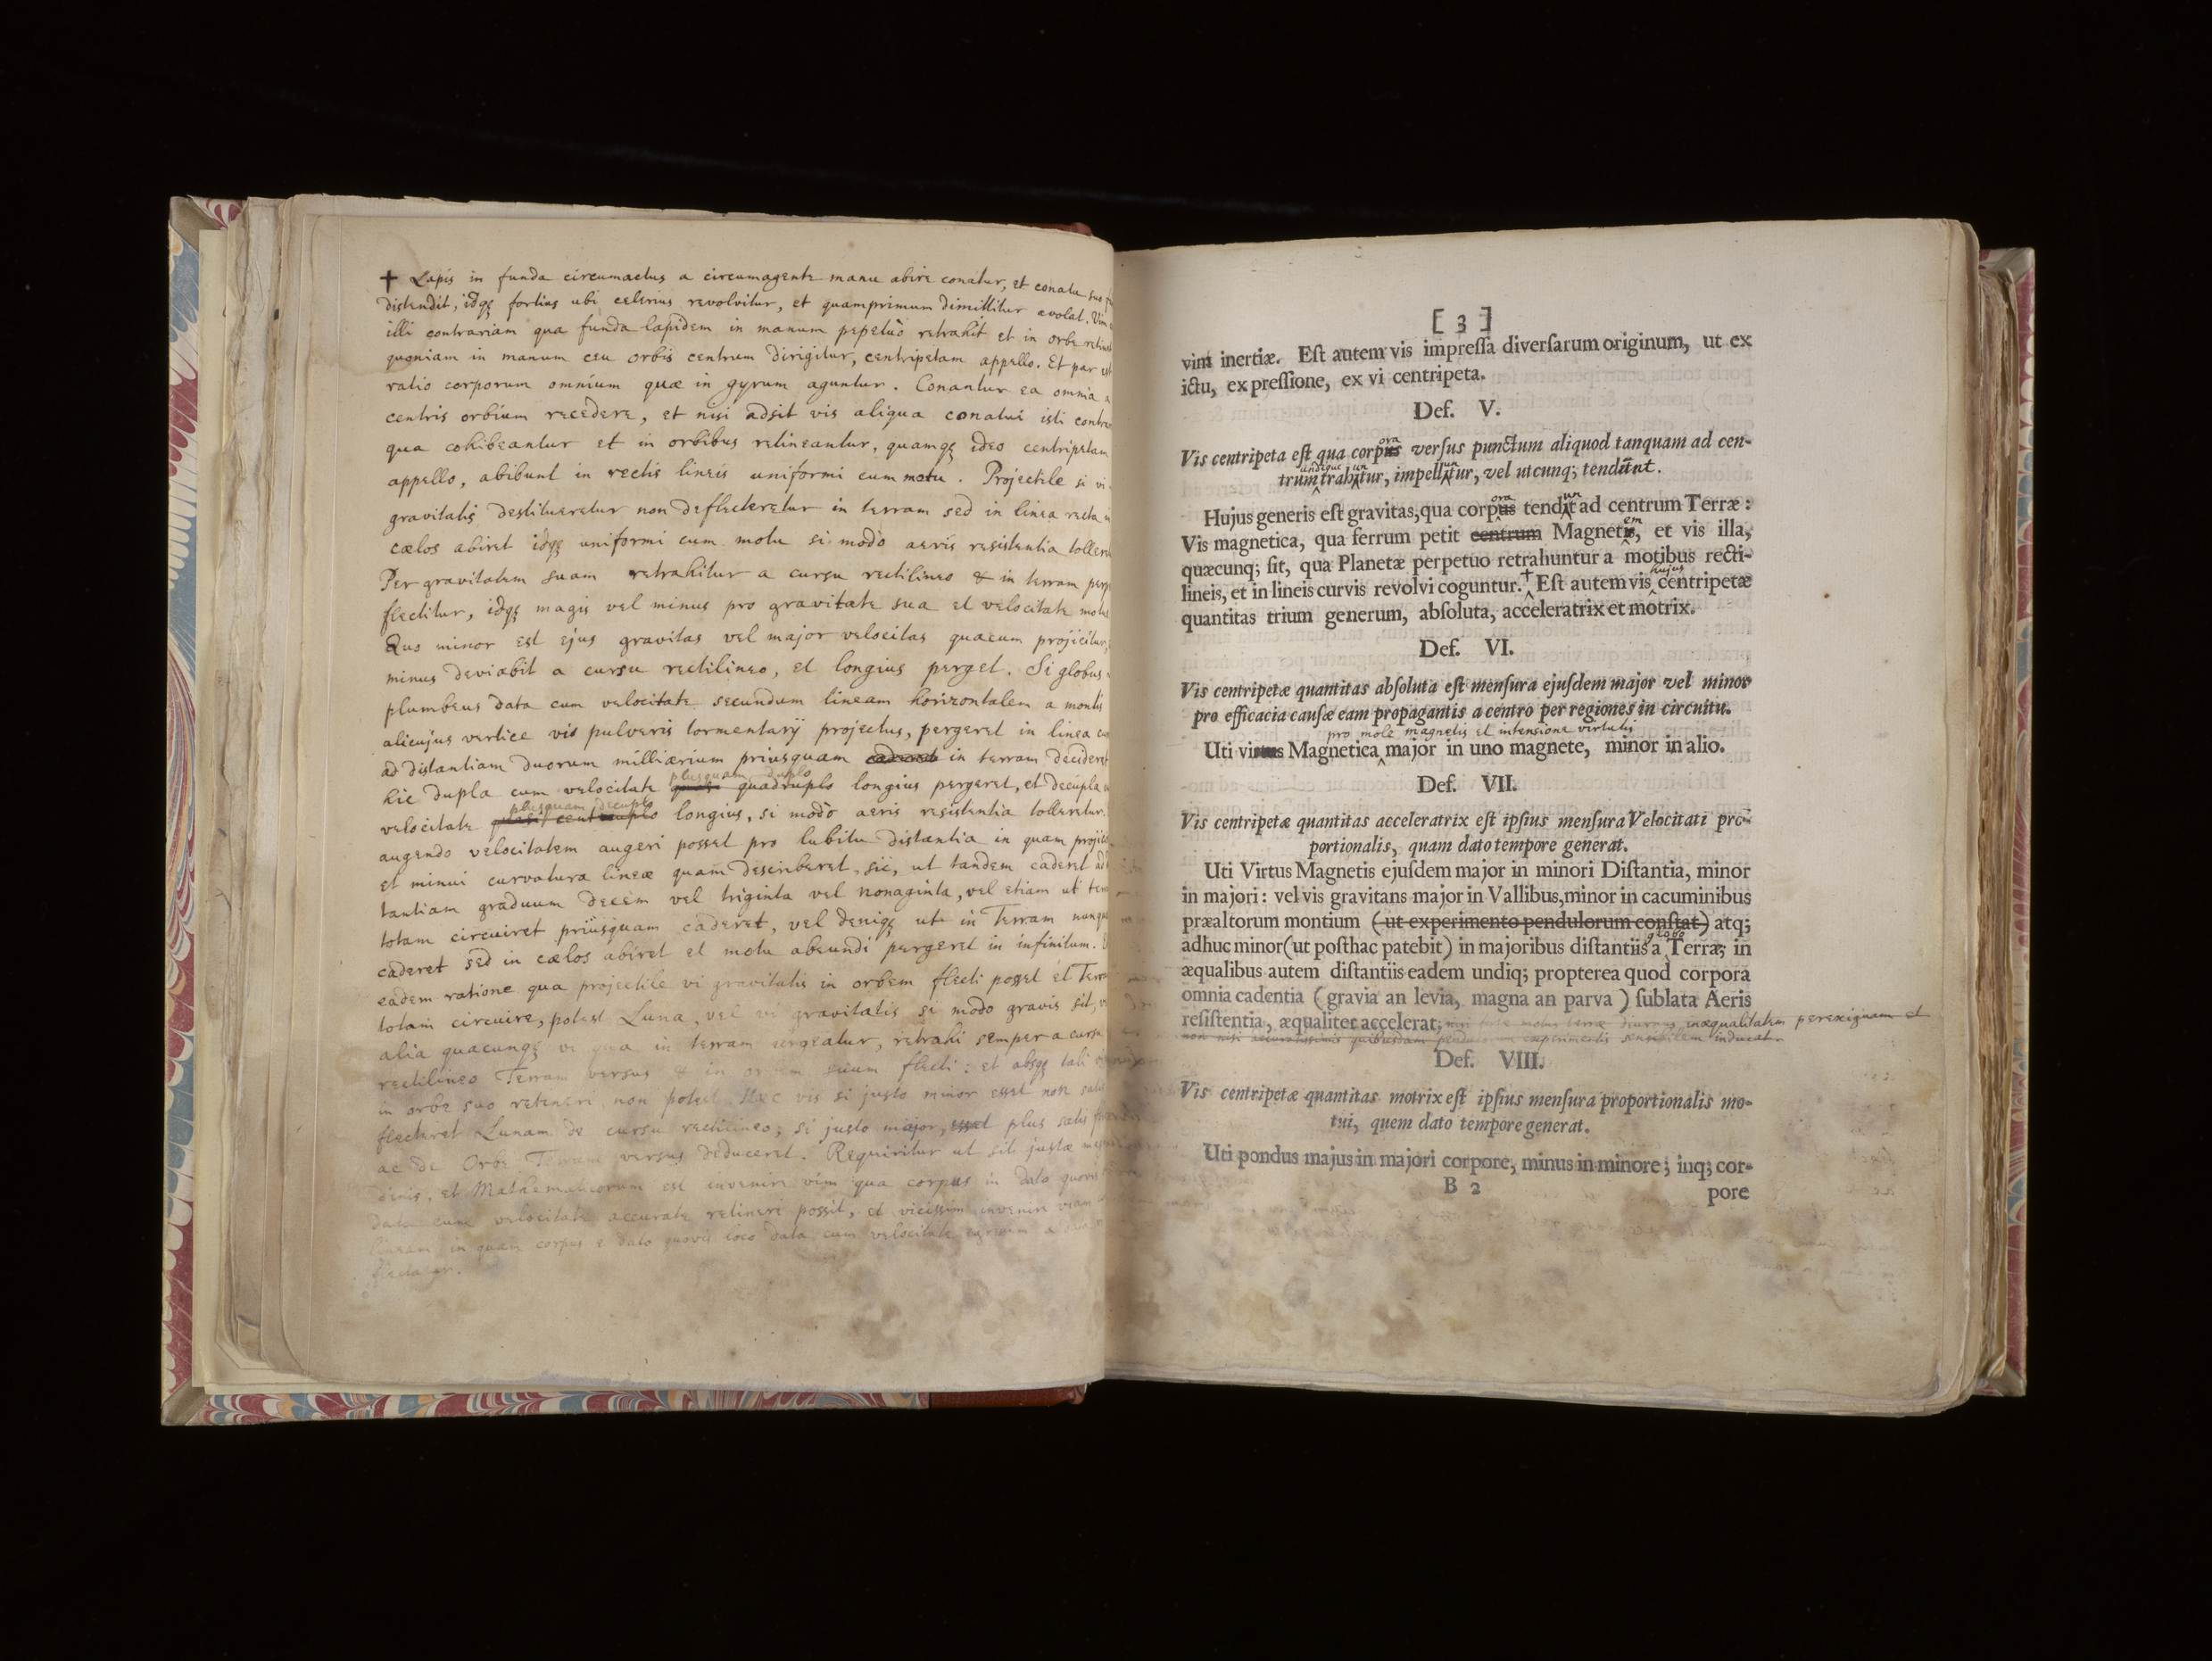 + Lapis in funda circumactus a circumagente manu abire conatur, et conatu suo
distendit, idqꝫ fortius ubi celerius revolvitur, et quamprimum dimittitur avolat. Vim
illi contrariam qua funda lapidem in manum pepetuò retrahit et in orbe retinet
quoniam in manum ceu orbis centrum dirigitur, centripetam appello. Et par est
ratio corporum omnium quæ in gyrum aguntur. Conantur ea omnia a
centris orbium recedere, et nisi adsit vis aliqua conatui isti contra
qua cohibeantur et in orbibus retineantur, quamqꝫ ideo centripetam
appello, abibunt in rectis lineis uniformi cum motu. Projectile si vi
gravitatis destitueretur non deflecteretur in terram sed in linea recta in
cælos abiret idqꝫ uniformi cum motu si modò aeris resistentia toller
Per gravitatem suam retrahitur a cursu rectilineo & in terram perp
flectitur, idqꝫ magis vel minus pro gravitate sua et velocitate motus
Quo minor est ejus gravitas vel major velocitas quacum projicitur,
minus deviabit a cursu rectilineo, et longius perget. Si globus
plumbeus data cum velocitate secundum lineam horizontalem a montis
alicujus vertice vis pulveris tormentarij projectus, pergeret in linea cu
ad distantiam duorum milliarium priusquam caderet in terram decideret
plusquam duplo
hic dupla cum velocitate quasi quadruplo longius pergeret, et decupla
plusquam decuplo
velocitate quasi centuplo longius, si modò aeris resistentia tolleretur.
augendo velocitatem augeri posset pro lubitu distantia in quam projic
et minui curvatura lineæ quam describeret, sic, ut tandem caderet ad
tantiam graduum decem vel triginta vel nonaginta, vel etiam ut terr
totam circuiret priusquam caderet, vel deniqꝫ ut in Terram nunqu
caderet sed in cælos abiret et motu abeundi pergeret in infinitum. E
eadem ratione qua projectile vi gravitatis in orbem flecti posset et Terra
totam circuire, potest Luna, vel vi gravitatis si modo gravis sit, v
alia quacunqꝫ vi qua in terram urgeatur, retrahi semper a cursu
rectilineo Terram versus & in orbem suum flecti: et absqꝫ tali vi
in orbe suo retineri non potest. Hæc vis si justo minor esset non satis
flecteret Lunam de cursu rectilineo; si justo major, esset plus satis
ac de Orbe Terram versus deduceret. Requiritur ut sit justæ ma
dinis, et Mathematicorum est invenire vim qua corpus in dato quovis
data cum velocitate accurate retineri possit, et vicissim invenire viam
lineam in quam corpus e dato quovis loco data cum velocitate egressum a data
flectatur.
[ 3 ]
vim inertiæ. Eſt autem vis impreſſa diverſarum originum, ut ex
ictu, ex preſſione, ex vi centripeta.
Def. V.
ora
Vis centripeta eſt qua corpus verſus punctum aliquod tanquam ad cen-
undique un un
trum trahitur, impellitur, vel utcunq; tendunt.
ora un
Hujus generis eſt gravitas, qua corpus tendit ad centrum Terræ:
em
Vis magnetica, qua ferrum petit centrum Magnetis, et vis illa,
quæcunq; ſit, qua Planetæ perpetuo retrahuntur a motibus recti-
hujus
lineis, et in lineis curvis revolvi coguntur. + Eſt autem vis centripetæ
quantitas trium generum, abſoluta, acceleratrix et motrix.
Def. VI.
Vis centripetæ quantitas abſoluta eſt menſura ejuſdem major vel minor
pro efficacia cauſæ eam propagantis a centro per regiones in circuitu.
pro mole magnetis et intensione virtutis
Uti virtus Magnetica major in uno magnete, minor in alio.
Def. VII.
Vis centripetæ quantitas acceleratrix eſt ipſius menſura Velocitati pro-
portionalis, quam dato tempore generat.
Uti Virtus Magnetis ejuſdem major in minori Diſtantia, minor
in majori: vel vis gravitans major in Vallibus, minor in cacuminibus
præaltorum montium (ut experimento pendulorum conſtat) atq;
globo
adhuc minor (ut poſthac patebit) in majoribus diſtantiis a Terræ; in
æqualibus autem diſtantiis eadem undiq; propterea quod corpora
omnia cadentia (gravia an levia, magna an parva) ſublata Aeris
reſiſtentia, æqualiter accelerat; nisi forte motus terræ diurnus inæqualitatem perexiguam et
non nisi accuratissimis quibusdam pendulorum experimentis sensibilem inducat.
Def. VIII.
Vis centripetæ quantitas motrix eſt ipſius menſura proportionalis mo-
tui, quem dato tempore generat.
Uti pondus majus in majori corpore, minus in minore; inq; cor-
B 2
pore